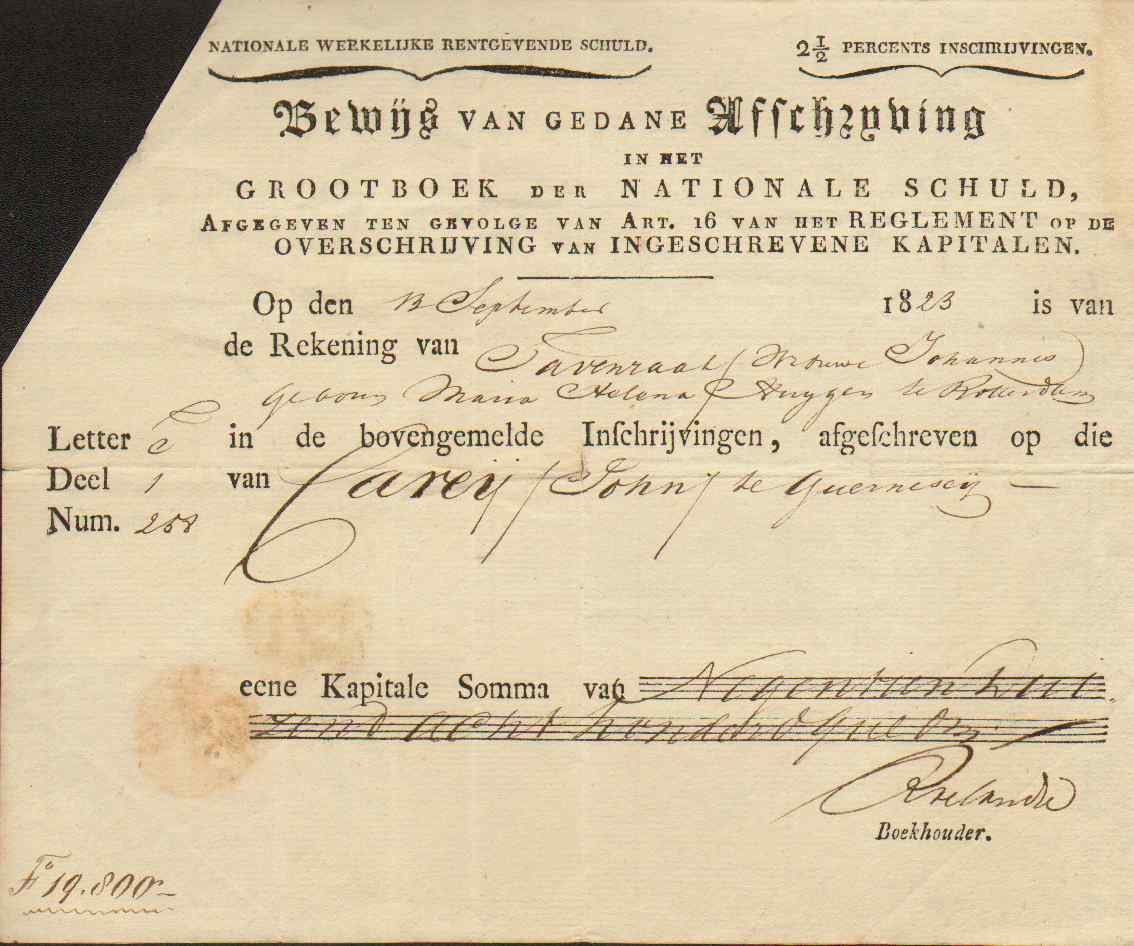 NATIONALE WERKELIJKE RENTGEVENDE SCHULD. 2 1/2 PERCENTS INSCHRIJVINGEN.
Bewijs VAN GEDANE Afſchryving
IN HET
GROOTBOEK DER NATIONALE SCHULD,
AFGEGEVEN TEN GEVOLGE VAN ART. 16 VAN HET REGLEMENT OP DE
OVERSCHRIJVING VAN INGESCHREVENE KAPITALEN.
Op den 13 September 1823 is van
de Rekening van Tavenraat (Vrouwe Johannes)
geboren Maria Helena Huygen te Rotterdam
Letter C in de bovengemelde Inſchrijvingen, afgeſchreven op die
Deel 1 van Carey (John) te Guernsey —
Num. 258
eene Kapitale Somma van Negentien dui
zend acht honderd gulden
Roelandts
Boekhouder.
Fo 19.800-